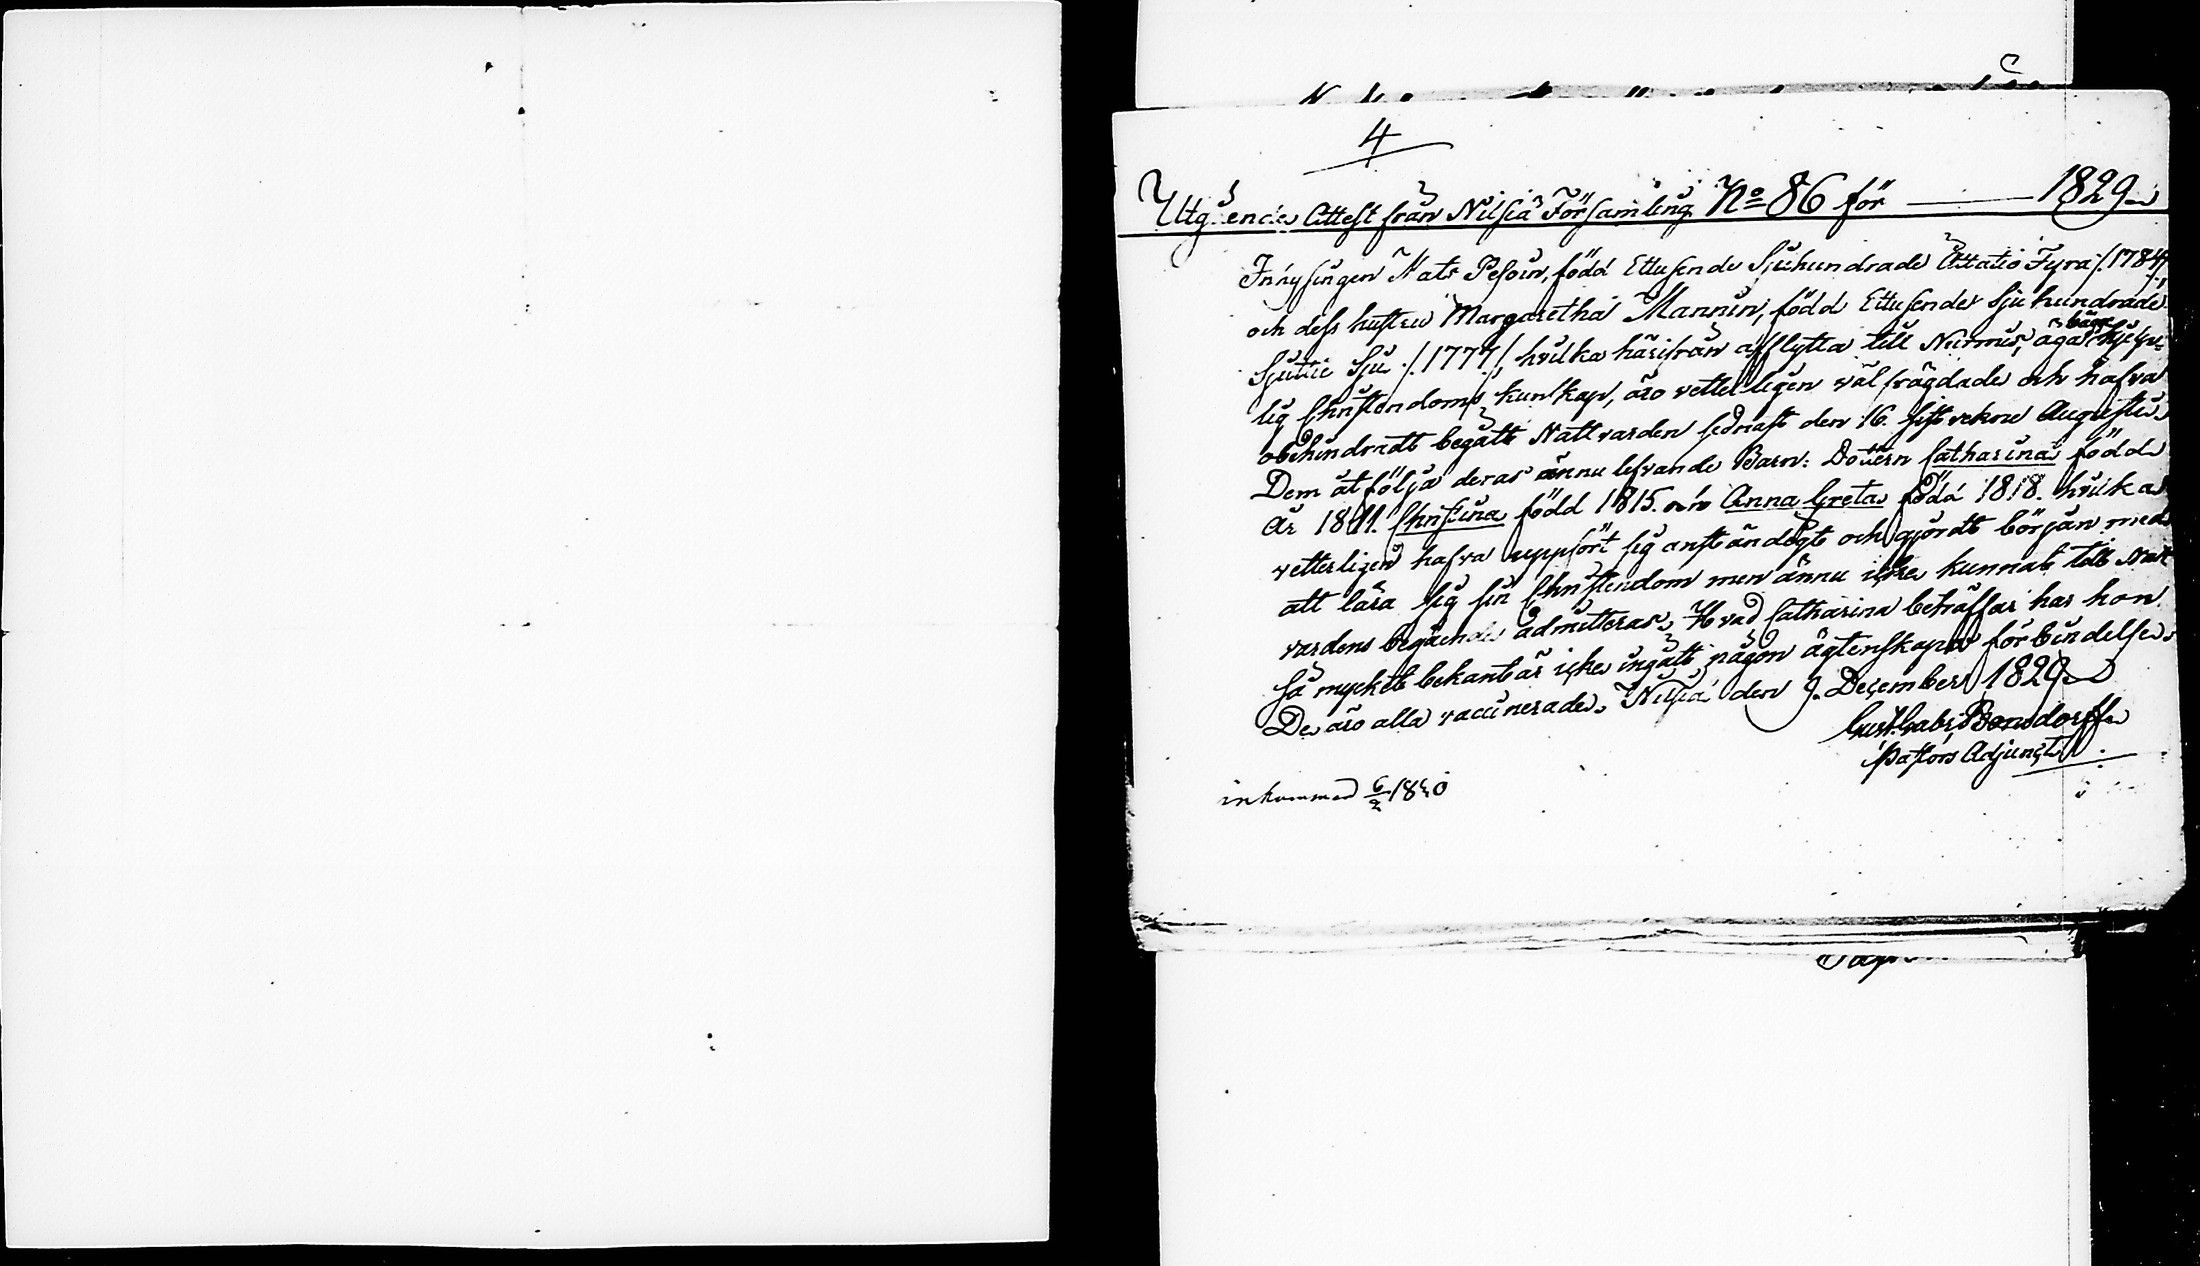 4
Utgående Attest från Nilsiä Församling No 86 för — 1829
Inhysingen Mats Pesoin, född Ettusende Sjuhundrade Åttatio Fyra /:1784:/,
och dess hustru Margaretha Mannin, född Ettusende Sjuhundrade
Sjuttie Sju /:1777:/, hvilka härifrån afflytta till Nurmis, äga både hjelpe-
lig Christendoms kunskap, äro vetterligen väl frägdade och hafva
obehindradt begått Nattvarden sednast den 16. sistvekne Augusti.
Dem åtfölja deras ännu lefvande Barn: Dottern Catharina född
År 1811. Christina född 1815. och Anna Greta född 1818. hvilka
vetterligen hafva uppfört sig anständigt och gjordt början med
att lära sig sin Christendom men ännu icke kunnat till Natt
vardens begående admitteras. Hvad Catharina beträffar har hon
så mycket bekant är icke ingått någon ägtenskaps förbindelse.
De äro alla vaccinerade. Nilsiä den 9. December 1829.
Gust. Gabr. Bonsdorff
Pastors Adjunct.
inkommed 6/2 1830